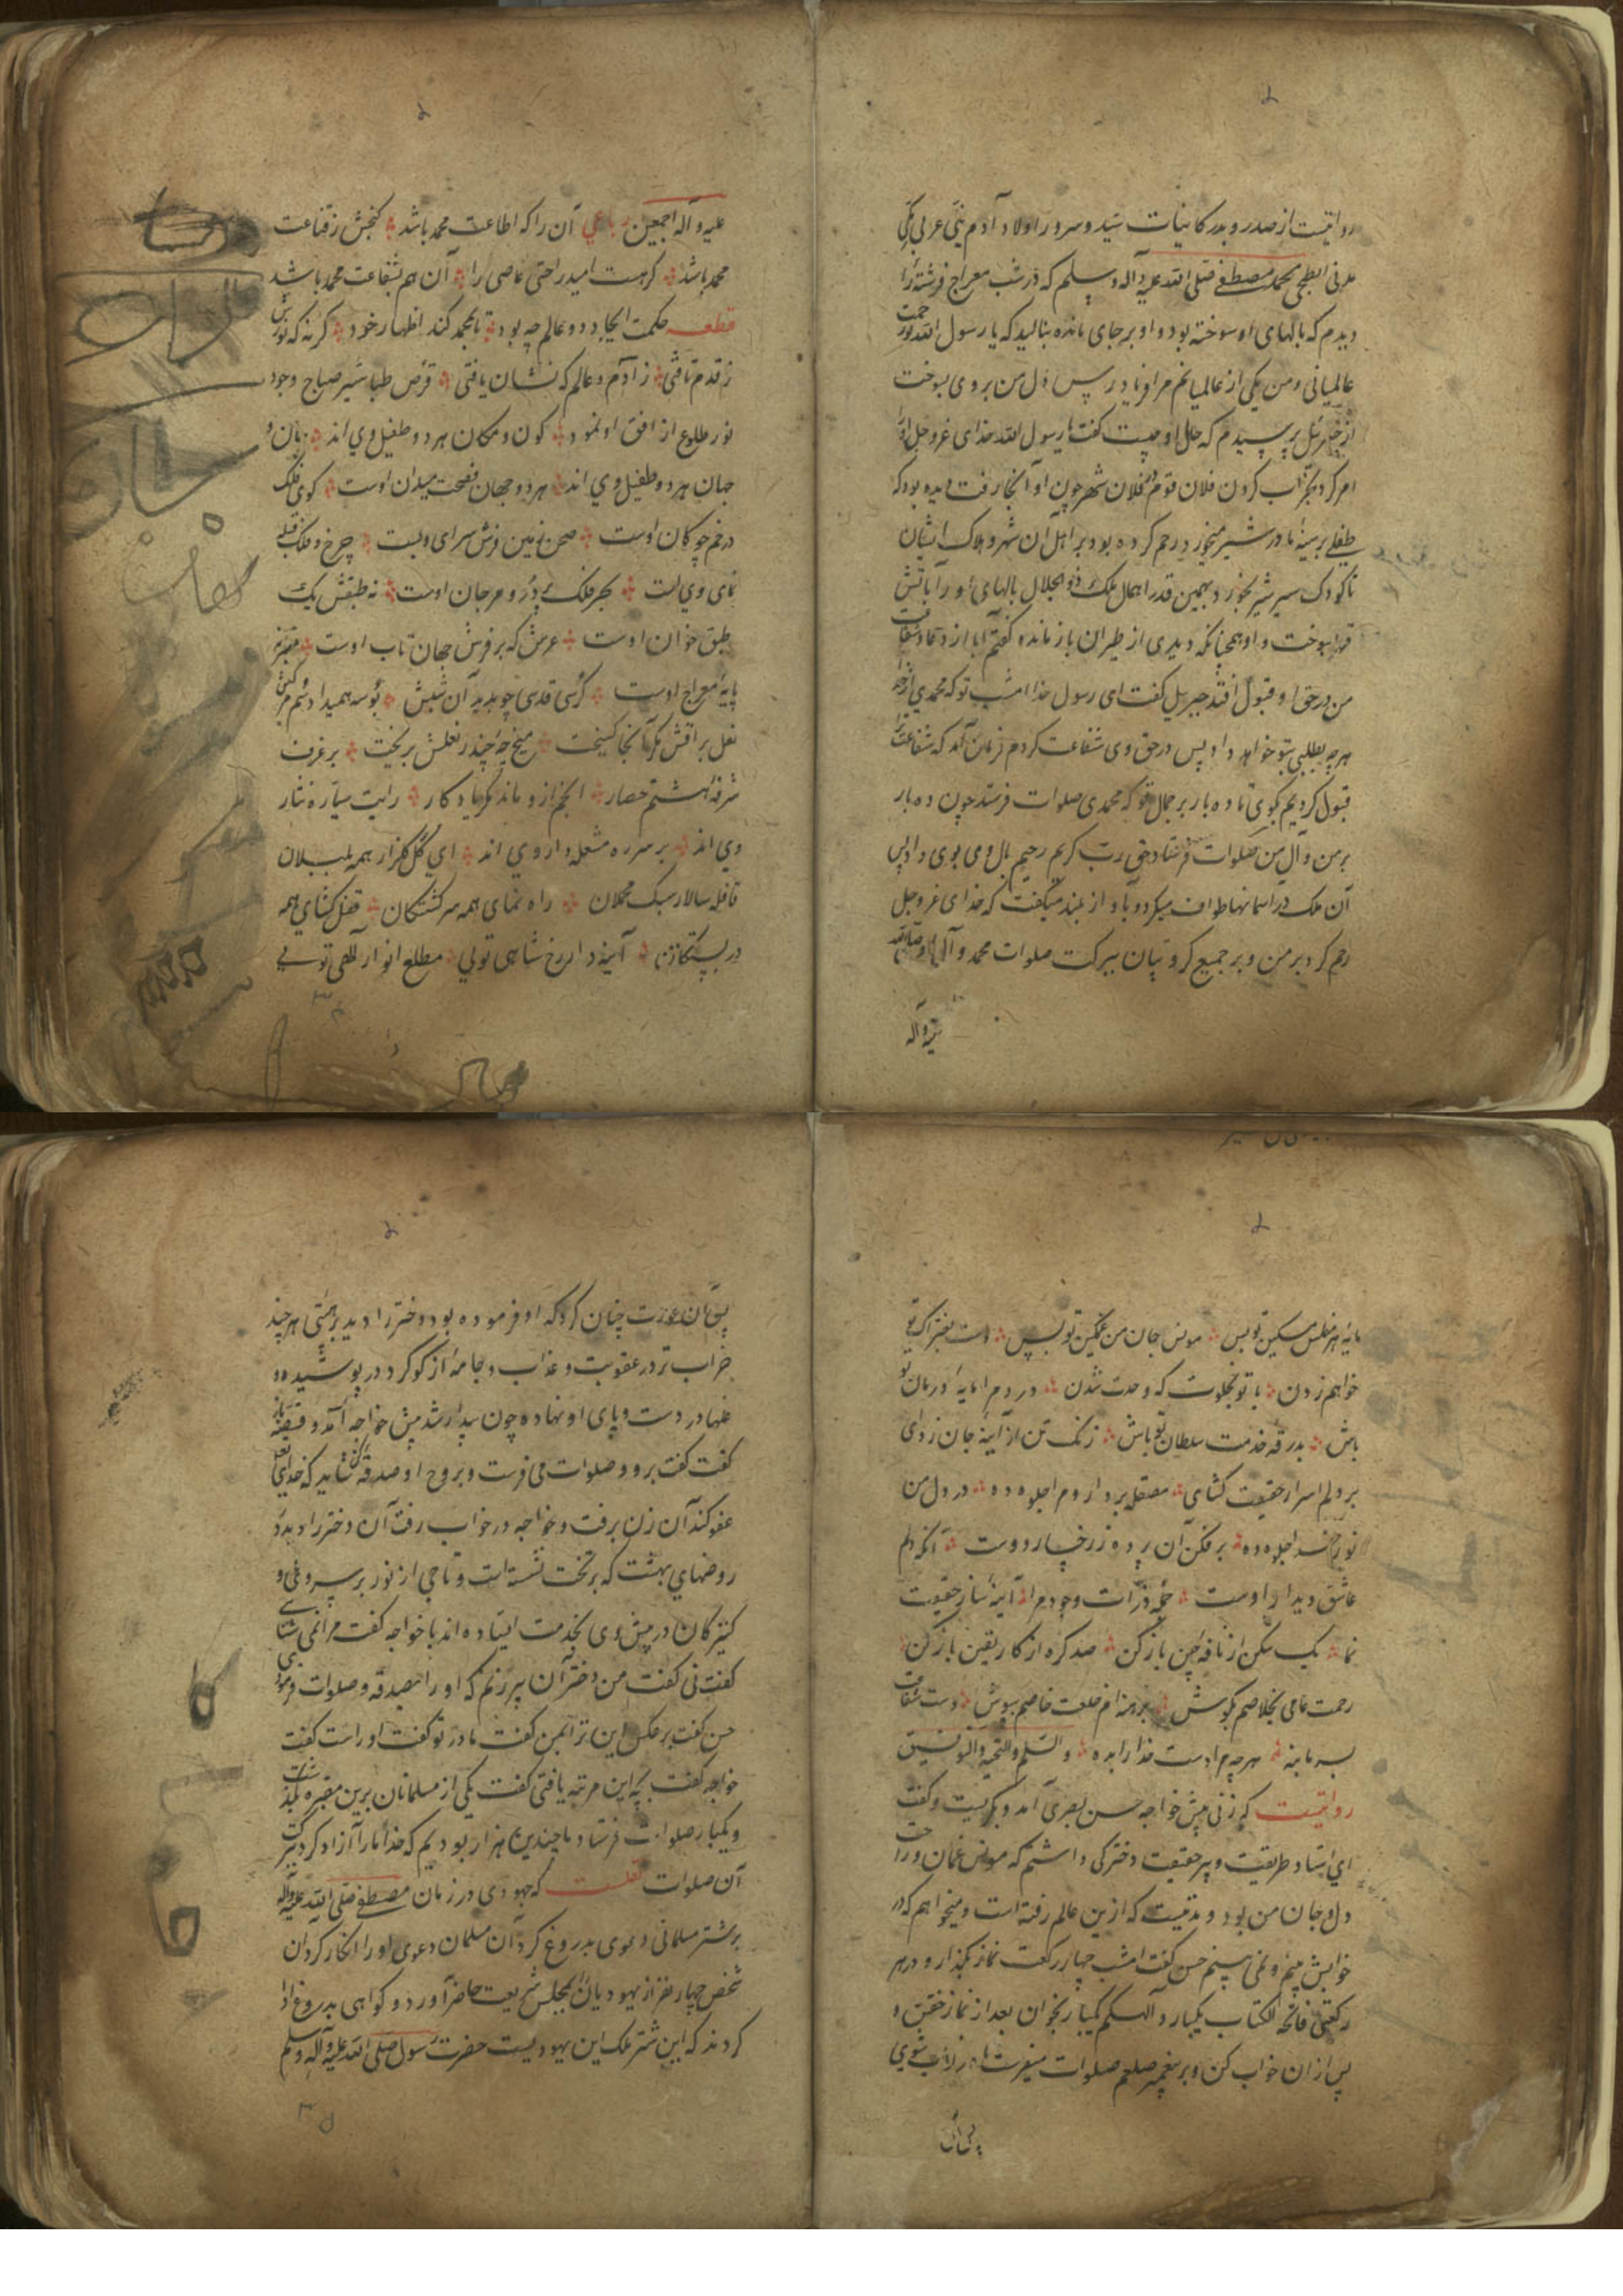 روایتست از صدر و بدر کاینات سید و سرور اولاد آدم نبی عربی مکی
مدنی ابطحی محمد مصطفی صلی الله علیه و آله و سلم که در شب معراج فرشته را
دیدم که بالهای او سوخته بود و او بر جای مانده بنالید که یا رسول الله تو رحمت
عالمیانی و من یکی از عالمیانم مرا فریاد رس دل من بر وی بسوخت
از جبرئیل پرسیدم که حال او چیست گفت یا رسول الله خدای عزوجل او را
امر کرد بخراب کردن فلان قوم در فلان شهر چون او آنجا رفت دیده بود که
طفلی بر سینهٔ مادر شیر میخورد رحم کرده بود بر اهل آن شهر و هلاک ایشان
تا کودک سیر شیر بخورد بهمین قدر اهمال ملک ذو الجلال بالهای او را بآتش
قهر بسوخت و او همچنانکه دیدی از طیران باز مانده گفتم آیا از دعا و شفاعت
من در حق او قبول افتد جبریل گفت ای رسول خدا امشب تو که محمدی از خدا
هر چه بطلبی بتو خواهد داد پس در حق وی شفاعت کردم فرمان آمد که شفاعت
قبول کردیم کوی تا ده بار بر جمال تو که محمدی صلوات فرستد چون ده بار
بر من و آل من صلوات فرستاد حق رب کریم رحیم بال و می بوی داد پس
آن ملک در آسمانها طواف میکرد و بآواز بلند میگفت که خدای عزوجل
رحم کرد بر من و بر جمیع کروبیان ببرکت صلوات محمد و آل او صلی الله
علیه و آله
علیه و آله اجمعین رباعی آن را که اطاعت محمد باشد گنجش ز قناعت
محمد باشد گر هست امید راحتی عاصی را آن هم بشفاعت محمد باشد
قطعه حکمت ایجاد دو عالم چه بود تا بمحمد کند اظهار خود گر نه که نورش
ز قدم تافتی ز آدم و عالم که نشان یافتی قرص طباشیر صباح وجود
نور طلوع از افق او نمود کون و مکان هر دو طفیل وی اند جان و
جهان هر دو طفیل وی اند هر دو جهان فسحت میدان اوست گوی فلک
در خم چوگان اوست صحن زمین فرش سرای ویست چرخ و فلک قبله
نمای وی است بحر فلک پر در و مرجان اوست نه طبقش یک
طبق خوان اوست عرش که بر فرش جهان تاب اوست
پایهٔ معراج اوست کرسی قدسی چو بدید آن شبش بوسه همیداد سم مرکبش
نعل براقش مگر آنجا گسیخت میخ چه چند ز نعلش بریخت بر غرف
شرفهٔ هشتم حصار انجم ازو ماند مگر یادگار رایت سیاره نثار
وی اند بر سر ره مشعله دار وی اند ای گل گلزار همه بلبلان
قافله سالار سبک محملان راه نمای همه سرگشتگان قفل گشای همه
در بستگان آینه دار رخ شاهی تویی مطلع انوار الهی تویی
مایهٔ هر مفلس مسکین تو بس مونس جان من غمگین تو بس دست بفتراک تو
خواهم زدن با تو بخلوت که وحدت شدن در دم را مایهٔ درمان تو
باش بدرقهٔ خدمت سلطان تو باش زنگ تن از آینهٔ جان زدای
بر دلم اسرار حقیقت گشای مصقله بردار و دم اجلوه ده در دل من
نور خدا جلوه ده بر فکن آن پرده ز رخسار دوست آنکه دلم
عاشق دیدار اوست جمله ذرات وجودم را آینه ساز حقیقت
نما یک شکن از نافهٔ چین باز کن صد گره از کار یقین باز کن
رحمت عامی بخلاصم بکوش برهنه ام خلعت خاصم بپوش دست شفاعت
بسر ما بنه هر چه مرادست خدا را بده والسلم والتحیه والتوفیق
روایتست که زنی پیش خواجه حسن بصری آمد و بگریست و گفت
ای استاد طریقت و پیر حقیقت دخترکی داشتم که مونس غمان و راحت
دل و جان من بود و مدتیست که ازین عالم رفته است و میخواهم که در
خوابش بینم و نمی بینم حسن گفت امشب چهار رکعت نماز بگذار و در هر
رکعتی فاتحه الکتاب یکبار و الهیکم یکبار بخوان بعد از نماز خفتن و
پس از آن خواب کن و بر پیغمبر صلعم صلوات میفرست تا در خواب شوی
پس آن
پس آن عورت چنان کرد که او فرموده بود دختر را دید بر هیئتی هر چند
خراب تر در عقوبت و عذاب و جامهٔ از گوگرد در پوشیده و
غلها در دست و پای او نهاده چون بیدار شد پیش خواجه آمد و قصه باز
گفت گفت برو و صلوات می فرست و بروح او صدقه کن شاید که خدای تعالی
عفو کند آن زن برفت و خواجه در خواب رفت آن دختر را دید در
روضهای بهشت که بر تخت نشسته است و تاجی از نور بر سر وی و
کنیزکان در پیش وی بخدمت ایستاده اند با خواجه گفت مرا نمی شناسی
گفت نی گفت من دختر آن پیر زنم که او را بصدقه و صلوات فرمودی
حسن گفت بر عکس این تر ابمن گفت مادر تو گفت او راست گفت
خواجه گفت بچه این مرتبه یافتی گفت یکی از مسلمانان برین مقبره بگذشت
و یکبار صلوات فرستاد ما چندین هزار بودیم که خدا ما را آزاد کرد ببرکت
آن صلوات نقلست که جهودی در زمان مصطفی صلی الله علیه و آله
بر شتر مسلمانی دعوی بدروغ کرد آن مسلمان دعوی او را انکار کرد آن
شخص چهار نفر از یهودیان بمجلس شریعت حاضر آورد و گواهی بدروغ ادا
کردند که این شتر ملک این یهودیست حضرت رسول صلی الله علیه و آله و سلم